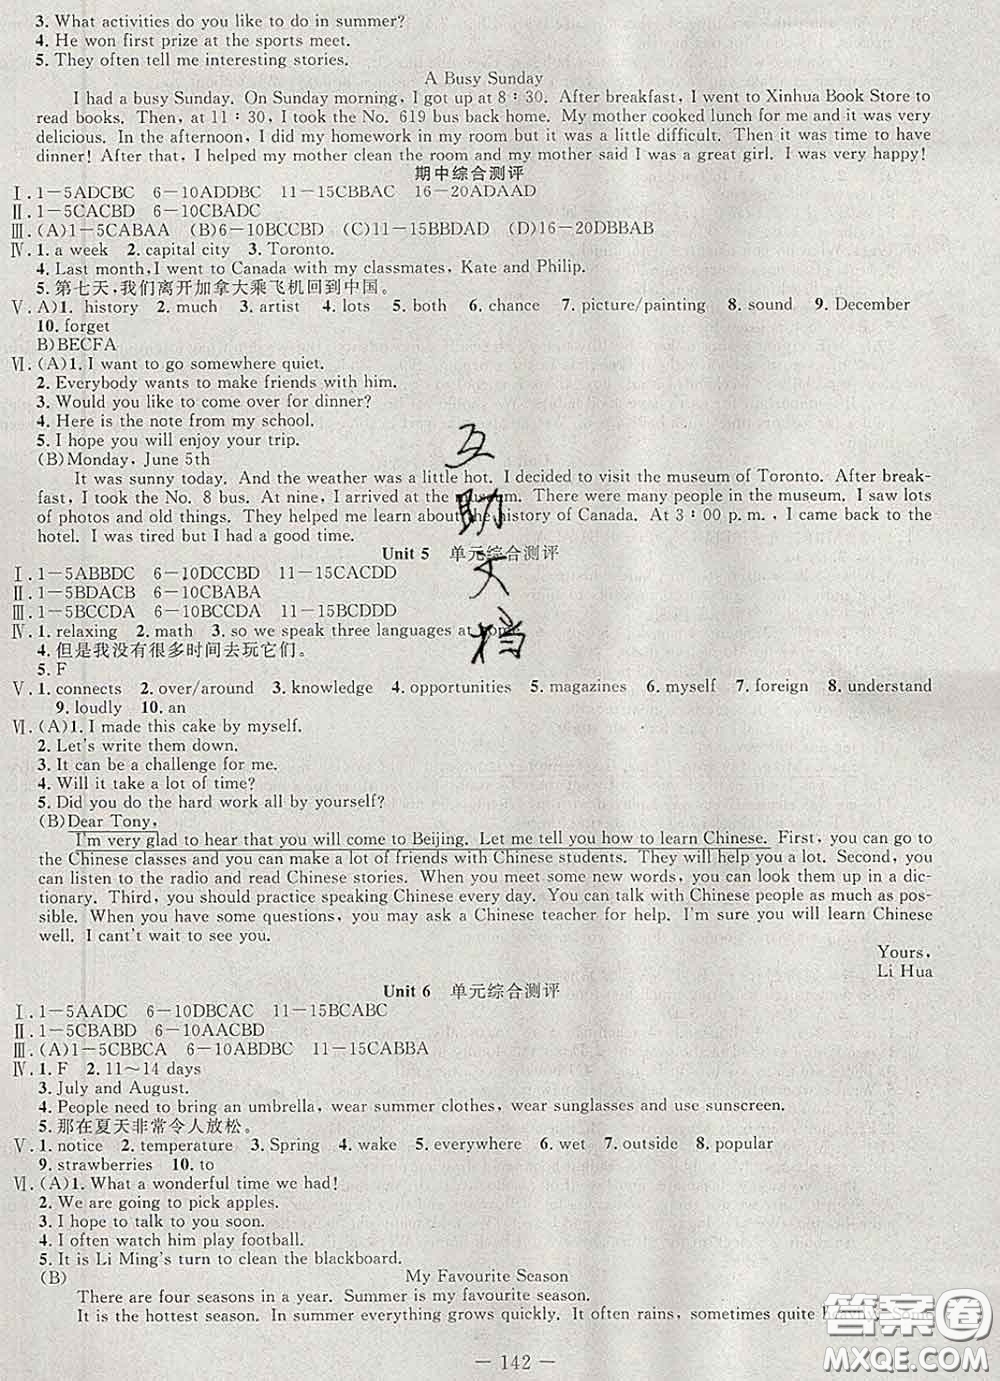 3. What activities do you like to do in summer?
4. He won first prize at the sports meet.
5. They often tell me interesting stories.
A Busy Sunday
I had a busy Sunday. On Sunday morning, I got up at 8∶30. After breakfast, I went to Xinhua Book Store to
read books. Then, at 11∶30, I took the No. 619 bus back home. My mother cooked lunch for me and it was very
delicious. In the afternoon, I did my homework in my room but it was a little difficult. Then it was time to have
dinner! After that, I helped my mother clean the room and my mother said I was a great girl. I was very happy!
期中综合测评
Ⅰ. 1－5ADCBC 6－10ADDBC 11－15CBBAC 16－20ADAAD
Ⅱ. 1－5CACBD 6－10CBADC
Ⅲ. (A)1－5CABAA (B)6－10BCCBD (C)11－15BBDAD (D)16－20DBBAB
Ⅳ. 1. a week 2. capital city 3. Toronto.
4. Last month, I went to Canada with my classmates, Kate and Philip.
5. 第七天,我们离开加拿大乘飞机回到中国。
Ⅴ. A)1. history 2. much 3. artist 4. lots 5. both 6. chance 7. picture/painting 8. sound 9. December
10. forget
B)BECFA
Ⅵ. (A)1. I want to go somewhere quiet.
2. Everybody wants to make friends with him.
3. Would you like to come over for dinner?
4. Here is the note from my school.
5. I hope you will enjoy your trip.
(B)Monday, June 5th
It was sunny today. And the weather was a little hot. I decided to visit the museum of Toronto. After break-
fast, I took the No. 8 bus. At nine, I arrived at the museum. There were many people in the museum. I saw lots
of photos and old things. They helped me learn about the history of Canada. At 3∶00 p. m. , I came back to the
hotel. I was tired but I had a good time.
Unit 5 单元综合测评
Ⅰ. 1－5ABBDC 6－10DCCBD 11－15CACDD
Ⅱ. 1－5BDACB 6－10BACBD
Ⅲ. 1－5BCCDA 6－10BCCDA 11－15BCDDD
Ⅳ. 1. relaxing 2. math 3. so we speak three languages at home
4. 但是我没有很多时间去玩它们。
5. F
Ⅴ. 1. connects 2. over/around 3. knowledge 4. opportunities 5. magazines 6. myself 7. foreign 8. understand
9. loudly 10. an
Ⅵ. (A)1. I made this cake by myself.
2. Let's write them down.
3. It can be a challenge for me.
4. Will it take a lot of time?
5. Did you do the hard work all by yourself?
(B)Dear Tony,
I'm very glad to hear that you will come to Beijing. Let me tell you how to learn Chinese. First, you can go to
the Chinese classes and you can make a lot of friends with Chinese students. They will help you a lot. Second, you
can listen to the radio and read Chinese stories. When you meet some new words, you can look them up in a dic-
tionary. Third, you should practice speaking Chinese every day. You can talk with Chinese people as much as pos-
sible. When you have some questions, you may ask a Chinese teacher for help. I'm sure you will learn Chinese
well. I cant't wait to see you.
Yours,
Li Hua
Unit 6 单元综合测评
Ⅰ. 1－5AADC 6－10DBCAC 11－15BCABC
Ⅱ. 1－5CBABD 6－10AACBD
Ⅲ. (A)1－5CBBCA 6－10ABDBC 11－15CABBA
Ⅳ. 1. F 2. 11～14 days
3. July and August.
4. People need to bring an umbrella, wear summer clothes, wear sunglasses and use sunscreen.
5. 那在夏天非常令人放松。
Ⅴ. 1. notice 2. temperature 3. Spring 4. wake 5. everywhere 6. wet 7. outside 8. popular
9. strawberries 10. to
Ⅵ. (A)1. What a wonderful time we had!
2. We are going to pick apples.
3. I hope to talk to you soon.
4. I often watch him play football.
5. It is Li Ming's turn to clean the blackboard.
(B) My Favourite Season
There are four seasons in a year. Summer is my favourite season.
It is the hottest season. In summer everything grows quickly. It often rains, sometimes quite
— 142 —
互助文档
答案圈
MXQE.COM